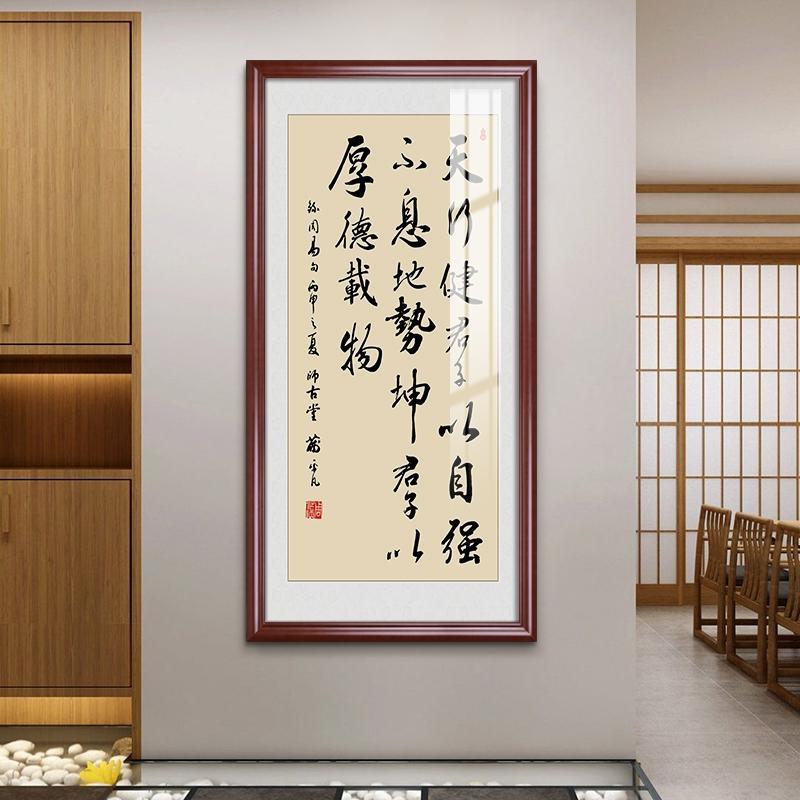 天行健君子以自强
不息地勢坤君子以
厚德載物
録周易句丙申之夏 师古堂